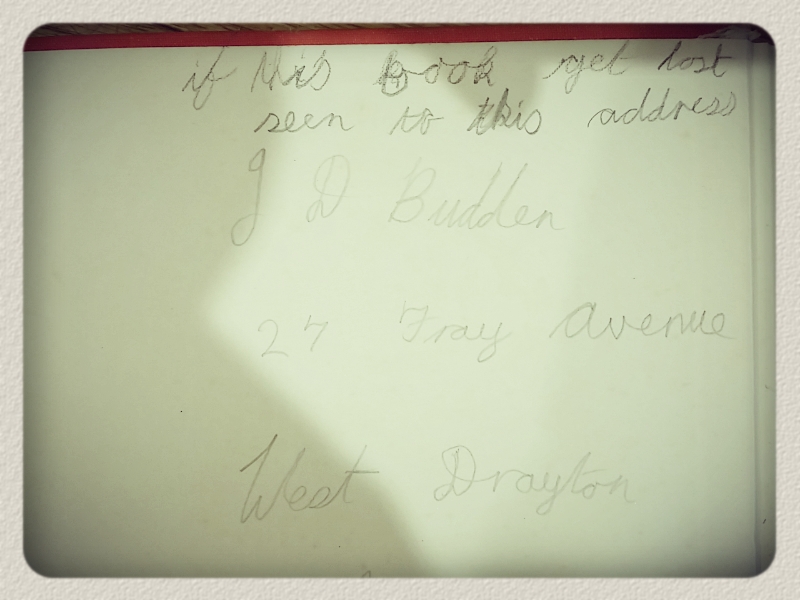 if this book get lost
seen to this address
J D Budden
27 Fray Avenue
West Drayton